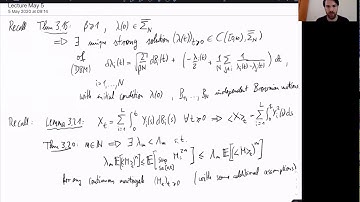 Lecture May 5
5 May 2020 at 09:15
Recall Thm 3.15: β≥1, λ(0) ∈ Σ̄_N
⟹ ∃ unique strong solution (λ(t))_{t≥0} ∈ C([0,∞), Σ̄_N)
of (DBM) dλ_i(t) = √(2/(βN)) dB_i(t) + (-λ_i(t)/2 + 1/N Σ_{j≠i} 1/(λ_i(t)-λ_j(t))) dt
i=1,...,N
with initial condition λ(0), B_1,...,B_N independent Brownian motions
Recall: Lemma 3.21: X_t = Σ_{i=1}^L ∫_0^t Y_i(s) dB_i(s) ∀t≥0 ⟹ <X>_t = Σ_{i=1}^L ∫_0^t Y_i^2(s) ds
Thm 3.20: m∈ℕ ⟹ ∃ λ_m < Λ_m s.t.
λ_m E[<M>_t^m] ≤ E[sup_{s∈[0,t]} M_s^{2m}] ≤ Λ_m E[<M>_t^m]
for any continuous martingale (M_t)_{t≥0} (with some additional assumptions)